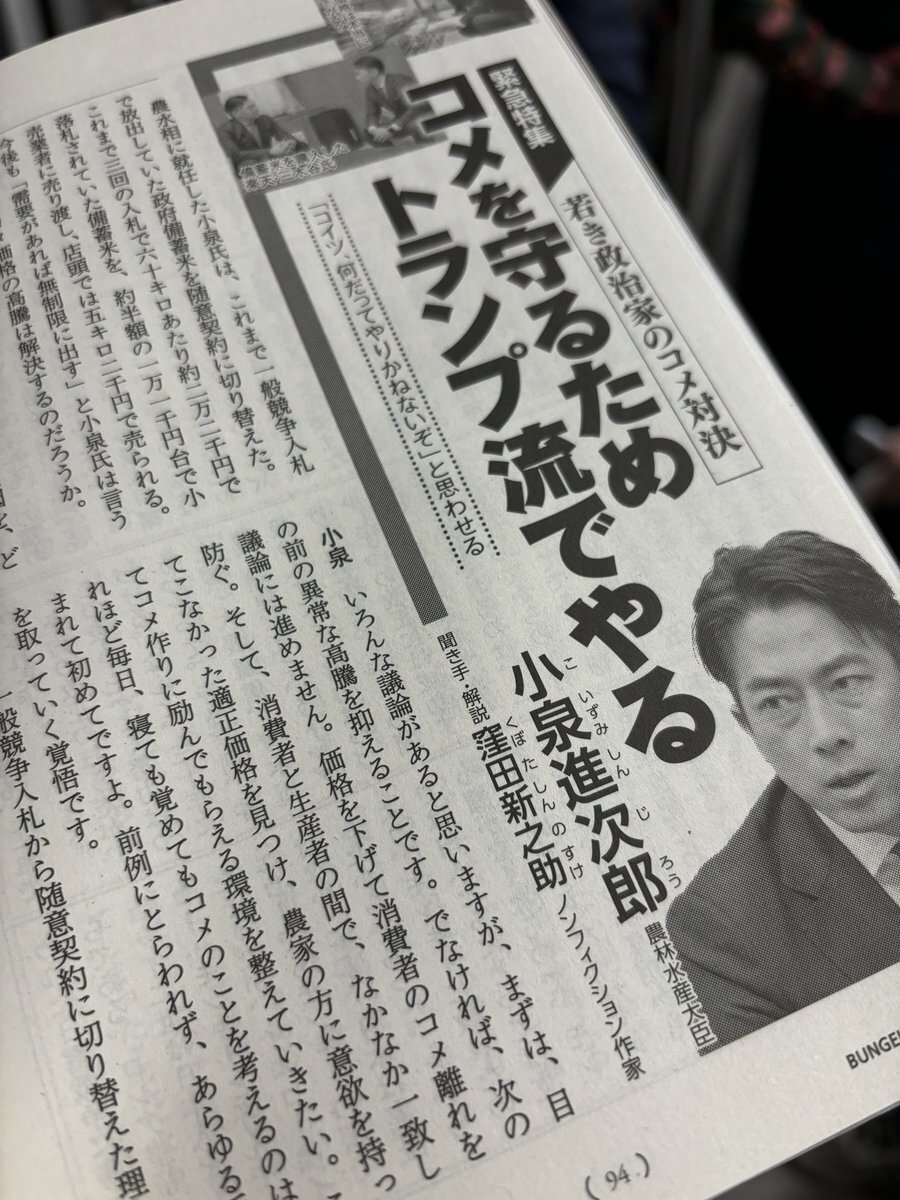 緊急特集
若き政治家のコメ対決
コメを守るため
トランプ流でやる
「コイツ、何だってやりかねないぞ」と思わせる
小泉進次郎 農林水産大臣
こいずみしんじろう
聞き手・解説 窪田新之助 ノンフィクション作家
くぼたしんのすけ
備蓄米を購入した
農水相に就任した小泉氏は、これまで一般競争入札
で放出していた政府備蓄米を随意契約に切り替えた。
これまで三回の入札で六十キロあたり約二万二千円で
落札されていた備蓄米を、約半額の一万一千円台で小
売業者に売り渡し、店頭では五キロ二千円で売られる。
今後も「需要があれば無制限に出す」と小泉氏は言う
価格の高騰は解決するのだろうか。
小泉 いろんな議論があると思いますが、まずは、目
の前の異常な高騰を抑えることです。でなければ、次の
議論には進めません。価格を下げて消費者のコメ離れを
防ぐ。そして、消費者と生産者の間で、なかなか一致し
てこなかった適正価格を見つけ、農家の方に意欲を持っ
てコメ作りに励んでもらえる環境を整えていきたい。こ
れほど毎日、寝ても覚めてもコメのことを考えるのは
まれて初めてですよ。前例にとらわれず、あらゆる
を取っていく覚悟です。
一般競争入札から随意契約に切り替えた理
BUNGEI
(94)